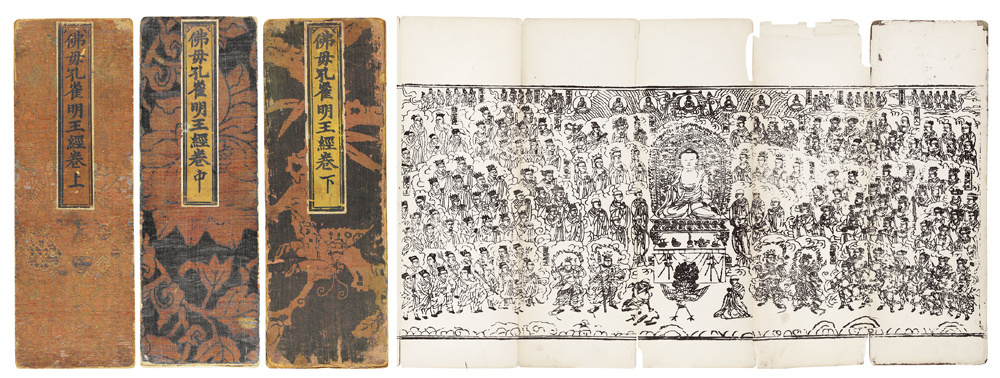 佛母孔雀明王經卷上
佛母孔雀明王經卷中
佛母孔雀明王經卷下